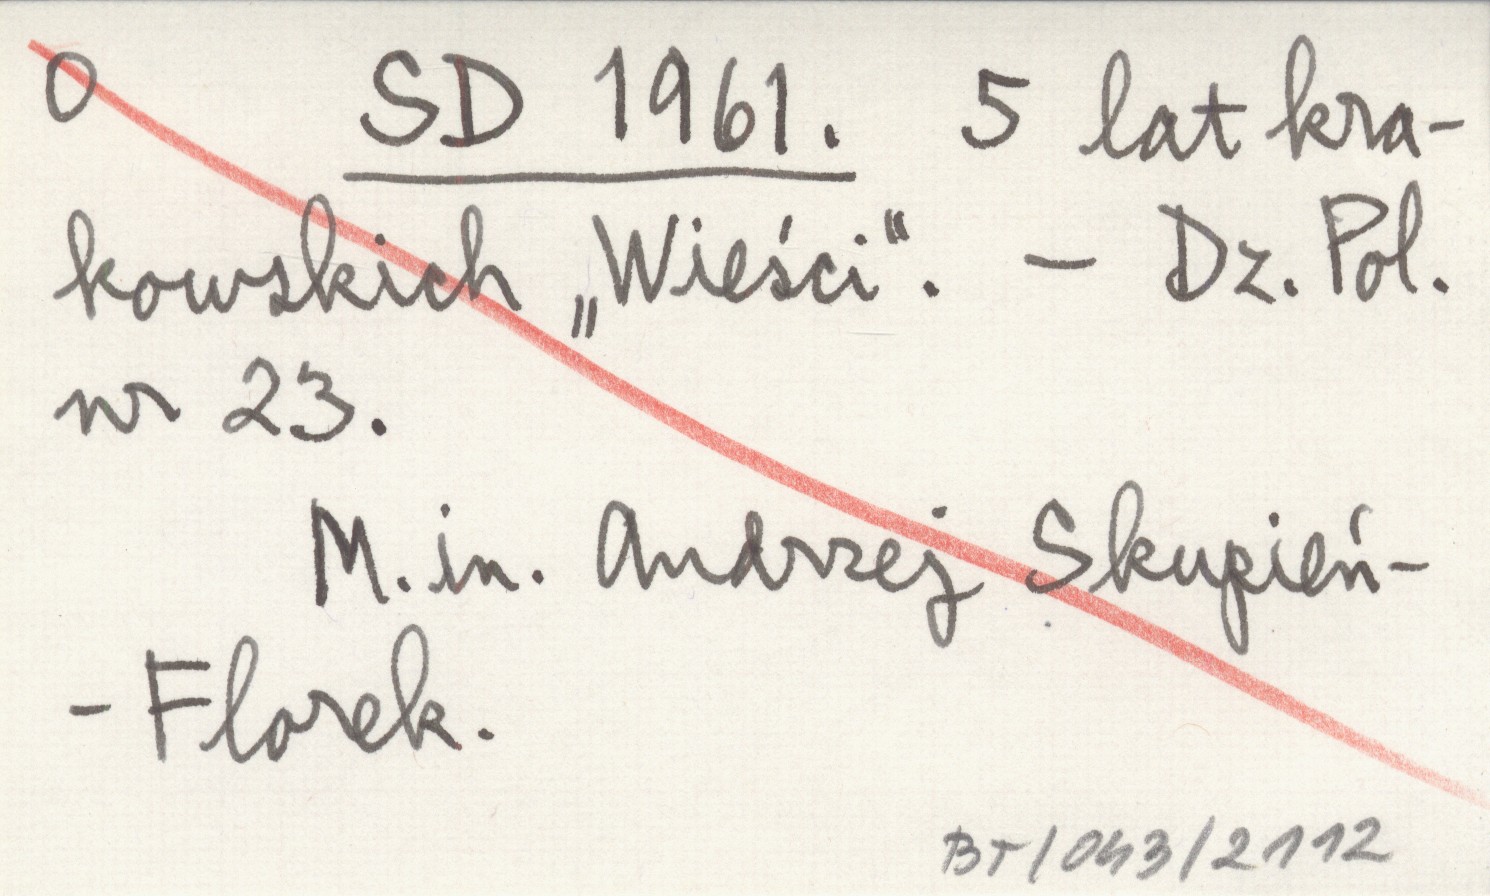 0 SD 1961. 5 lat kra-
kowskich „Wieści“. — Dz. Pol.
nr 23.
M. in. Andrzej Skupień-
-Florek.
BT/043/2112